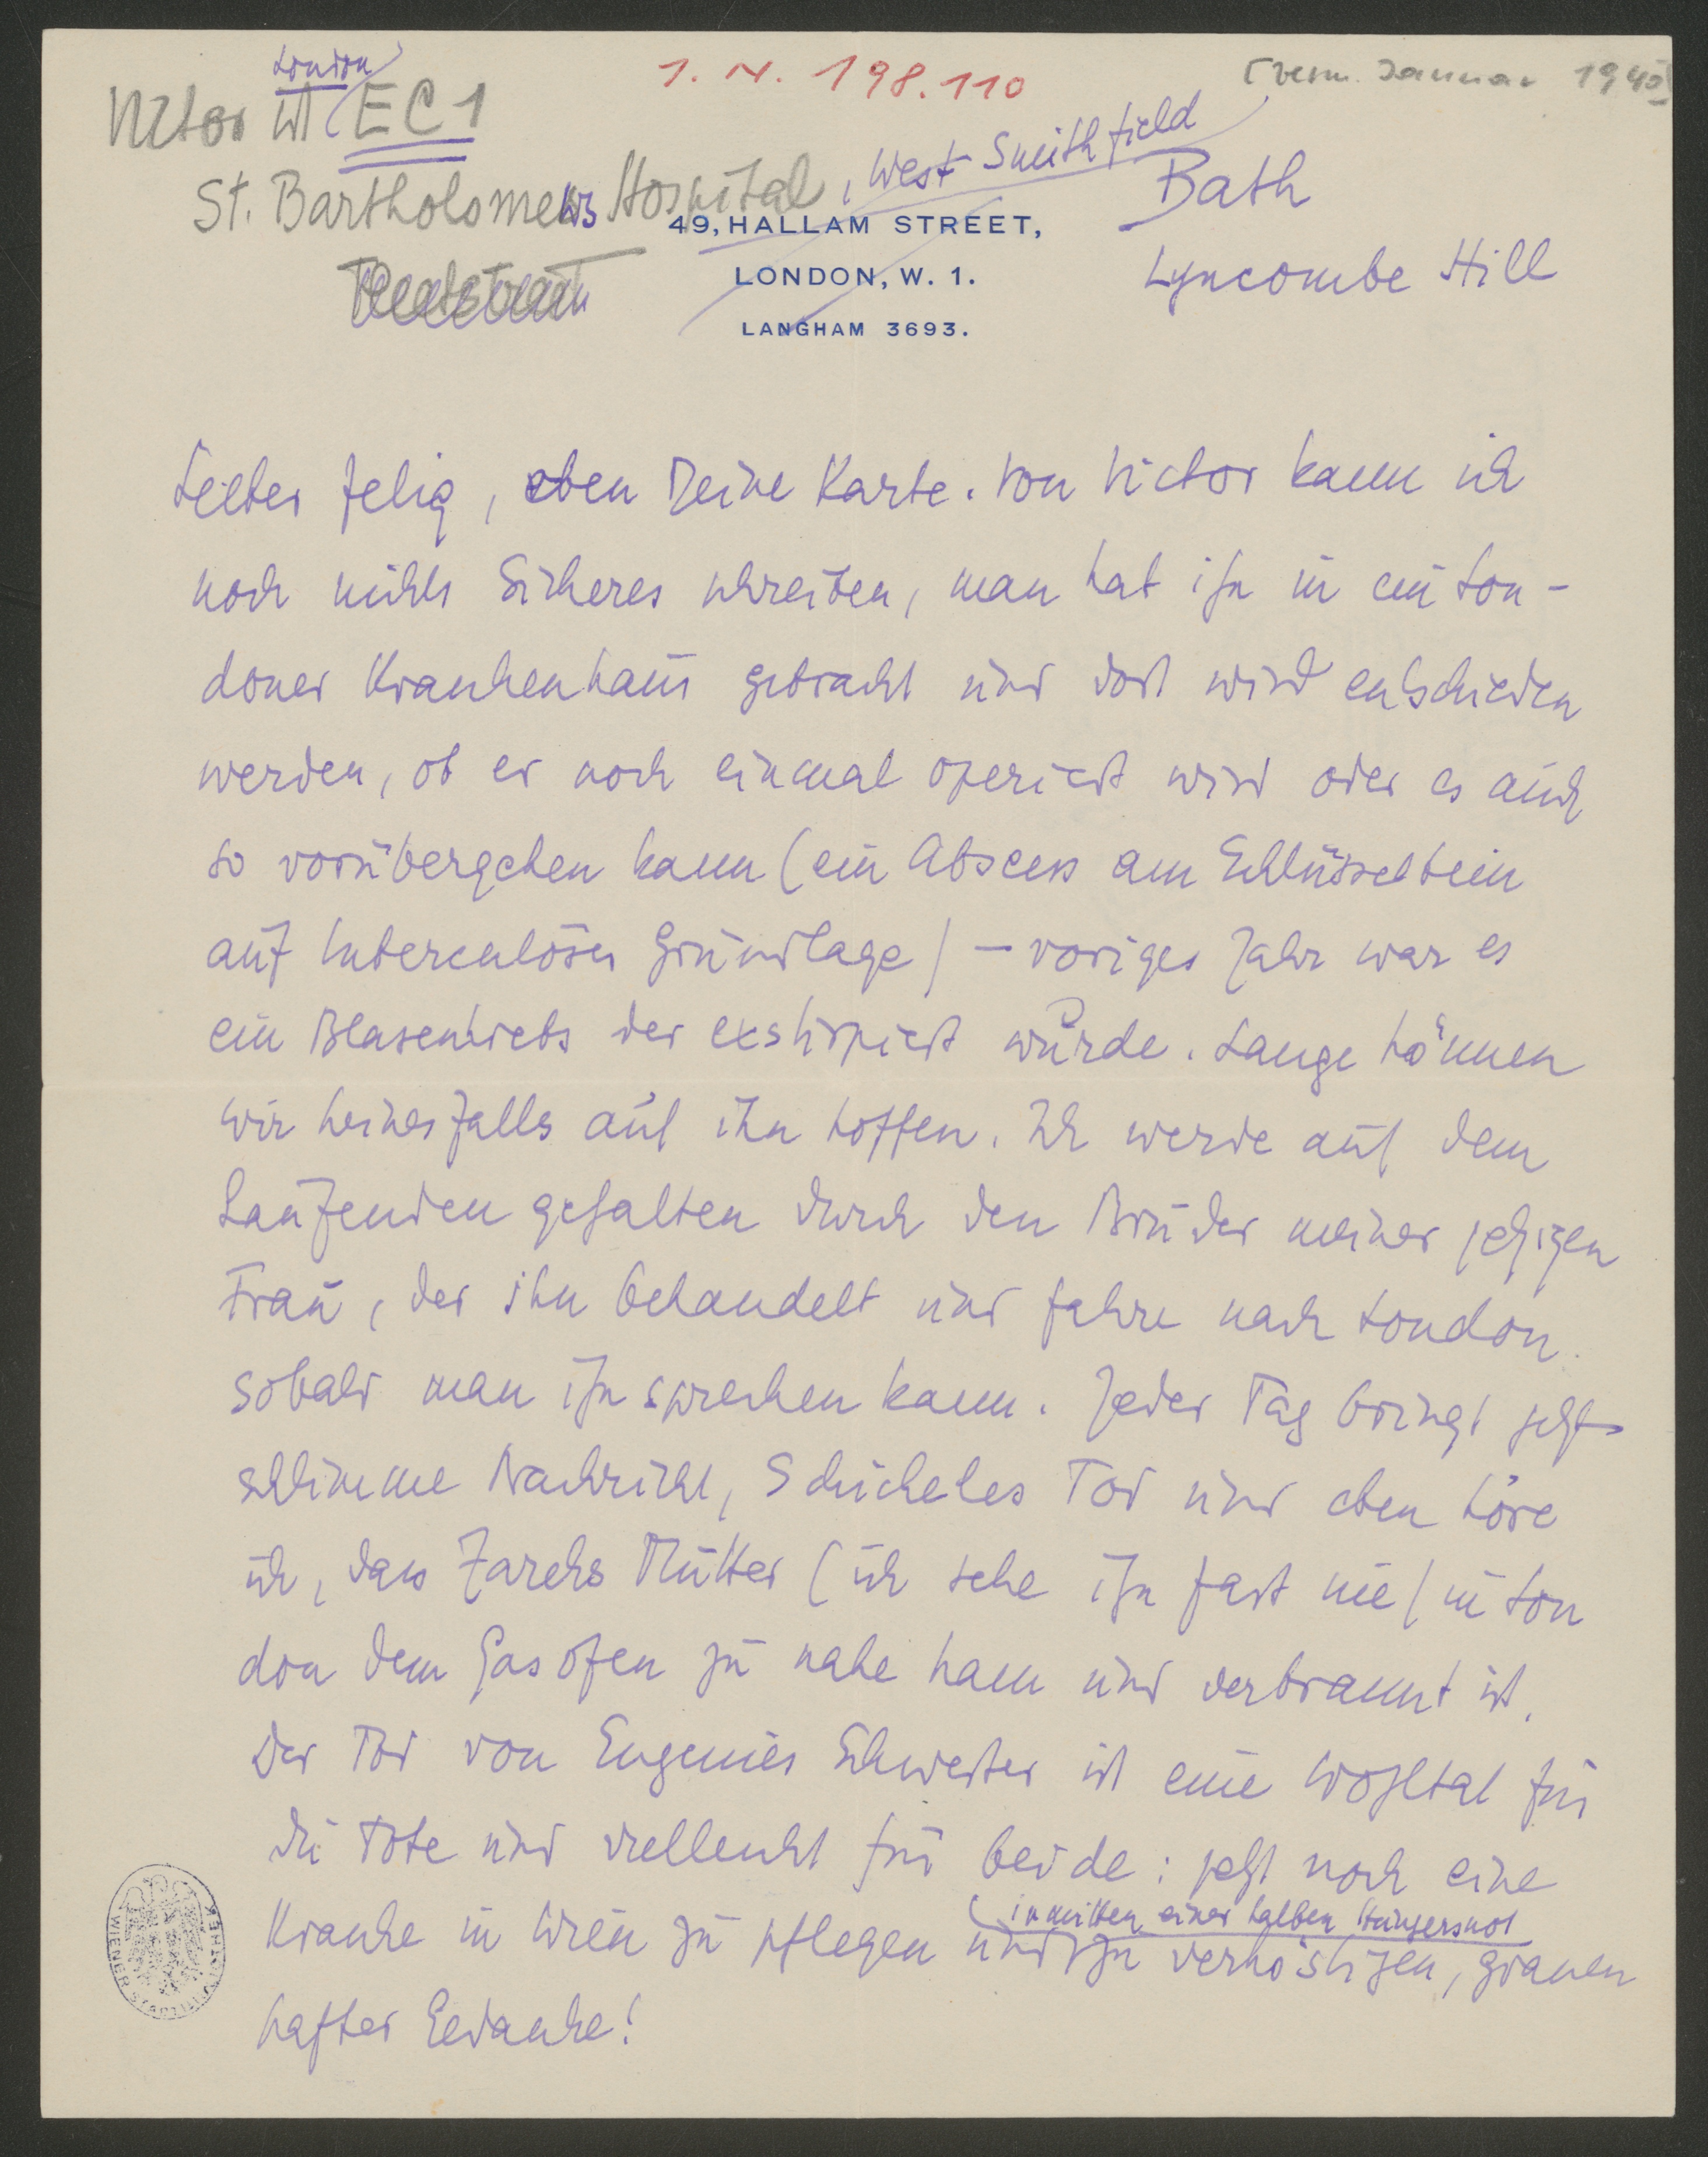 London
Victor ist EC 1
I. N. 198.110
[verm. Januar 1940]
St. Bartholomews Hospital, West Smithfield
Bath
49, HALLAM STREET,
Lyncombe Hill
LONDON, W. 1.
LANGHAM 3693.
Lieber Felix, eben Deine Karte. Von Victor kann ich
noch nichts Sicheres schreiben, man hat ihn in ein Lon-
doner Krankenhaus gebracht und dort wird entschieden
werden, ob er noch einmal operiert wird oder es auch
so vorübergehen kann (ein Abscess am Schlüsselbein
auf tuberculöser Grundlage) – voriges Jahr war es
ein Blasenkrebs der exstirpiert wurde. Lange können
wir keinesfalls auf ihn hoffen. Ich werde auf dem
Laufenden gehalten durch den Bruder meiner jetzigen
Frau, der ihn behandelt und fahre nach London
sobald man ihn sprechen kann. Jeder Tag bringt jetzt
schlimme Nachricht, Schickeles Tod und eben höre
ich, dass Zareks Mutter (ich sehe ihn fast nie) in Lon
don dem Gasofen zu nahe kam und verbrannt ist.
Der Tod von Eugenies Schwester ist eine Wohltat für
die Tote und vielleicht für beide: jetzt noch eine
Kranke in Wien zu pflegen und (inmitten einer halben Hungersnot
zu verköstigen, grauen
hafter Gedanke!
WIENER STADTBIBLIOTHEK